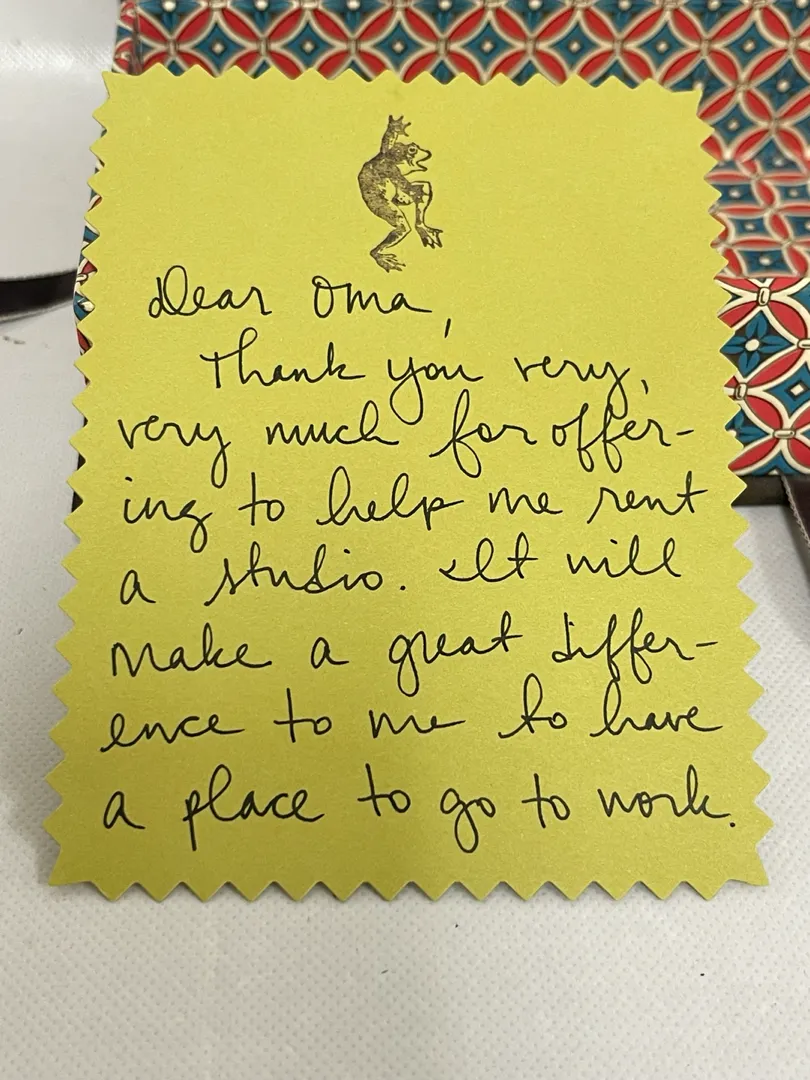 Dear Oma,
Thank you very,
very much for offer-
ing to help me rent
a studio. It will
make a great differ-
ence to me to have
a place to go to work.